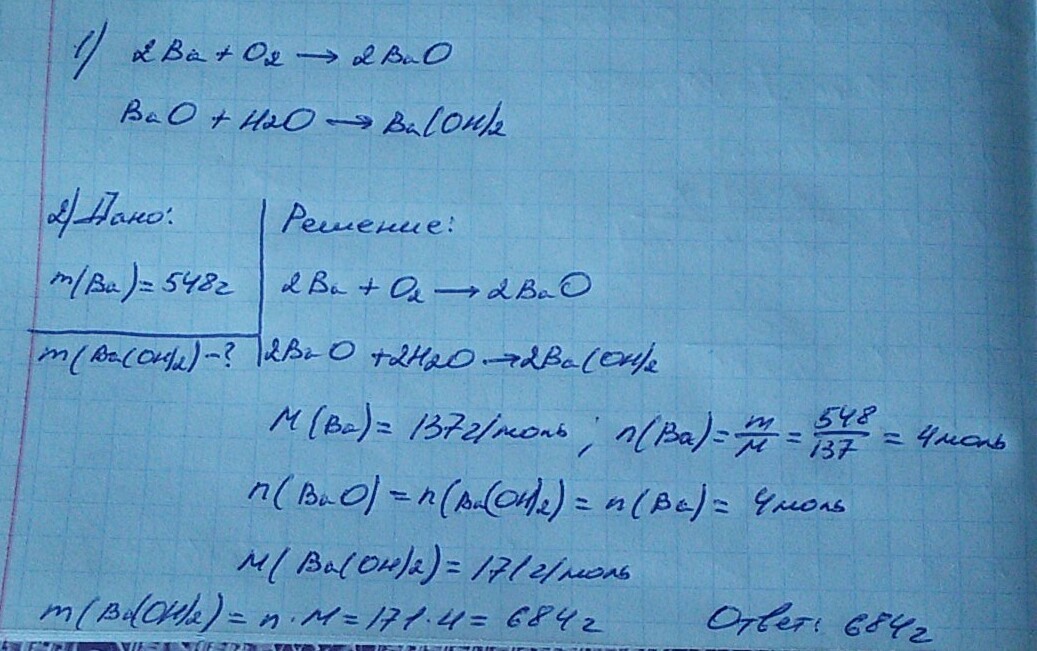 1) 2Ba + O2 → 2BaO
BaO + H2O → Ba(OH)2
2) Дано:
m(Ba) = 548г
m(Ba(OH)2) - ?
Решение:
2Ba + O2 → 2BaO
2BaO + 2H2O → 2Ba(OH)2
M(Ba) = 137г/моль ; n(Ba) = m/M = 548/137 = 4моль
n(BaO) = n(Ba(OH)2) = n(Ba) = 4моль
M(Ba(OH)2) = 171г/моль
m(Ba(OH)2) = n · M = 171 · 4 = 684г Ответ: 684г